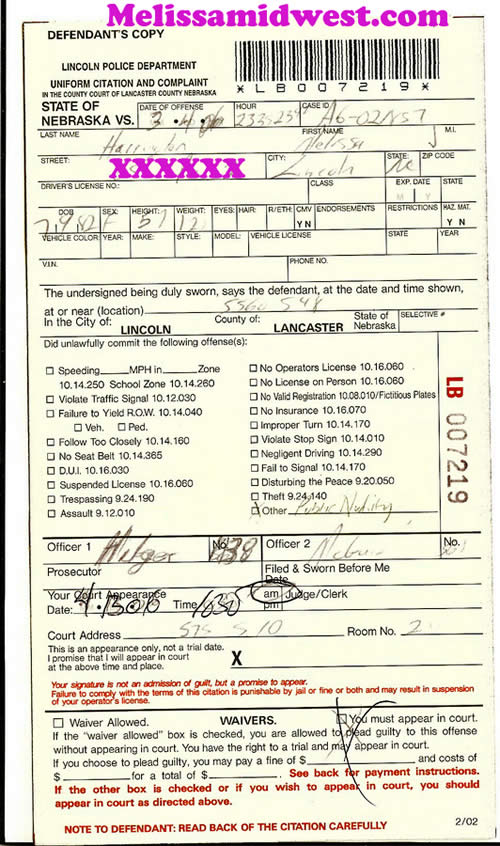 Melissamidwest.com
DEFENDANT'S COPY
LINCOLN POLICE DEPARTMENT
UNIFORM CITATION AND COMPLAINT
IN THE COUNTY COURT OF LANCASTER COUNTY NEBRASKA
*LB007219*
STATE OF NEBRASKA VS.
DATE OF OFFENSE 3.4.06
HOUR
CASE ID
LAST NAME Harrington
FIRST NAME Melissa
M.I.
STREET: XXXXXX
CITY: Lincoln
STATE: Ne
ZIP CODE
DRIVER'S LICENSE NO.:
CLASS
EXP. DATE M Y
STATE
DOB
SEX: F
HEIGHT:
WEIGHT:
EYES:
HAIR:
R/ETH:
CMV Y N
ENDORSEMENTS
RESTRICTIONS
HAZ. MAT. Y N
VEHICLE COLOR
YEAR:
MAKE:
STYLE:
MODEL:
VEHICLE LICENSE
STATE
YEAR
V.I.N.
PHONE NO.
The undersigned being duly sworn, says the defendant, at the date and time shown,
at or near (location)
In the City of: LINCOLN County of: LANCASTER State of Nebraska
SELECTIVE #
Did unlawfully commit the following offense(s):
Speeding MPH in Zone
10.14.250 School Zone 10.14.260
Violate Traffic Signal 10.12.030
Failure to Yield R.O.W. 10.14.040
Veh. Ped.
Follow Too Closely 10.14.160
No Seat Belt 10.14.365
D.U.I. 10.16.030
Suspended License 10.16.060
Trespassing 9.24.190
Assault 9.12.010
No Operators License 10.16.060
No License on Person 10.16.060
No Valid Registration 10.08.010/Fictitious Plates
No Insurance 10.16.070
Improper Turn 10.14.170
Violate Stop Sign 10.14.010
Negligent Driving 10.14.290
Fail to Signal 10.14.170
Disturbing the Peace 9.20.050
Theft 9.24.140
Other Public Nudity
LB 007219
Officer 1
No.
Officer 2
No.
Prosecutor
Filed & Sworn Before Me
Date
Your Court Appearance
Date: Time 1030 am pm
Judge/Clerk
Court Address 575 S 10 Room No. 2
This is an appearance only, not a trial date.
I promise that I will appear in court
at the above time and place.
X
Your signature is not an admission of guilt, but a promise to appear.
Failure to comply with the terms of this citation is punishable by jail or fine or both and may result in suspension
of your operator's license.
Waiver Allowed. WAIVERS. You must appear in court.
If the "waiver allowed" box is checked, you are allowed to plead guilty to this offense
without appearing in court. You have the right to a trial and may appear in court.
If you choose to plead guilty, you may pay a fine of $ and costs of
$ for a total of $ . See back for payment instructions.
If the other box is checked or if you wish to appear in court, you should
appear in court as directed above.
NOTE TO DEFENDANT: READ BACK OF THE CITATION CAREFULLY
2/02